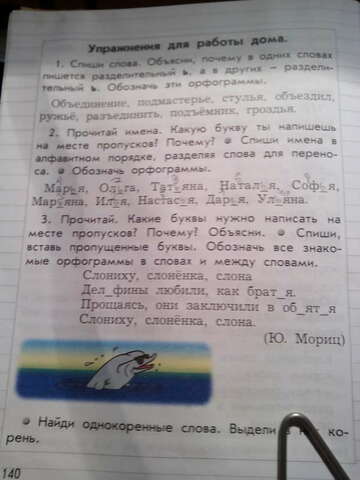 Упражнения для работы дома.
1. Спиши слова. Объясни, почему в одних словах
пишется разделительный ъ, а в других – раздели-
тельный ь. Обозначь эти орфограммы.
Объединение, подмастерье, стулья, объездил,
ружьё, разъединить, подъёмник, гроздья.
2. Прочитай имена. Какую букву ты напишешь
на месте пропусков? Почему? Спиши имена в
алфавитном порядке, разделяя слова для перено-
са. Обозначь орфограммы.
Мар_я, Ол_га, Тат_яна, Натал_я, Соф_я,
Мар_яна, Ил_я, Настас_я, Дар_я, Ул_яна.
3. Прочитай. Какие буквы нужно написать на
месте пропусков? Почему? Объясни. Спиши,
вставь пропущенные буквы. Обозначь все знако-
мые орфограммы в словах и между словами.
Слониху, слонёнка, слона
Дел_фины любили, как брат_я.
Прощаясь, они заключили в об_ят_я
Слониху, слонёнка, слона.
(Ю. Мориц)
Найди однокоренные слова. Выдели в ко-
рень.
140